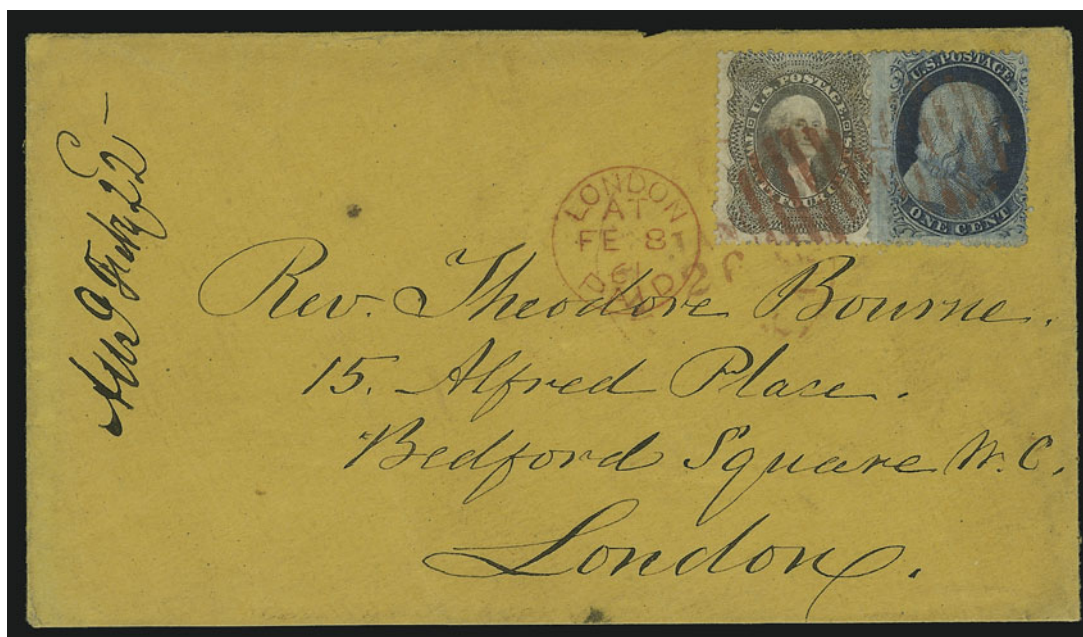 U.S. POSTAGE
U.S. POSTAGE
ONE CENT
LONDON
AT
FE 8
61
PAID
Rev. Theodore Bourne.
15. Alfred Place.
Bedford Square W.C.
London.